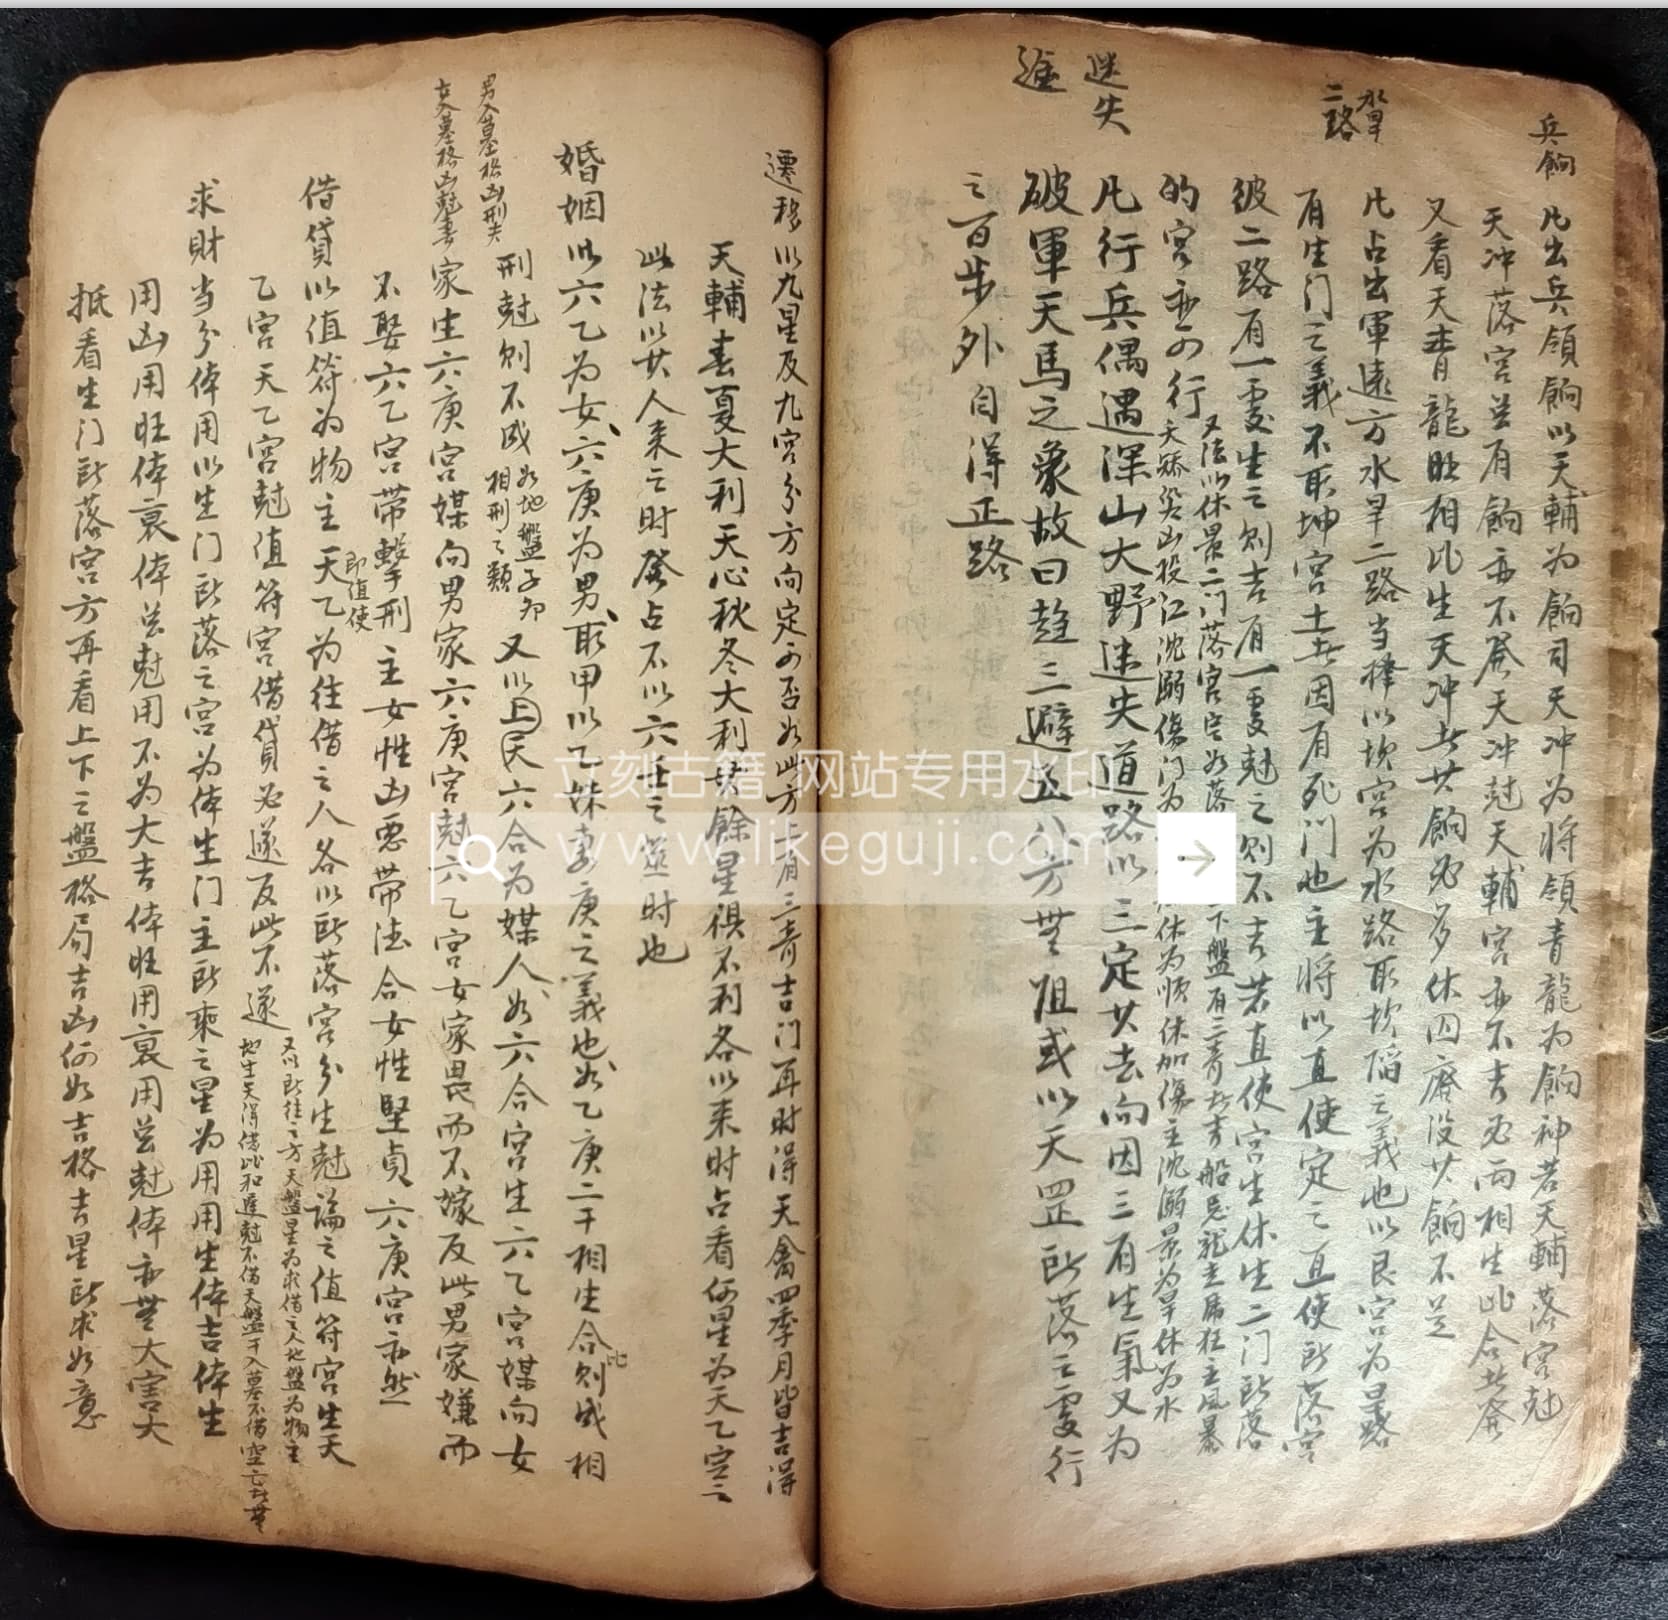 兵餉
凡出兵領餉以天輔為餉司天冲為將領青龍為餉神若天輔落宮尅
天冲落宮並有餉亦不發天冲尅天輔宮亦不吉必兩相生比合此發
又看天青龍旺相比生天冲此其餉必多休囚廢沒其餉不足
水旱
二路
凡占出軍遠方水旱二路当擇以坎宮為水路取坎陷之義也以艮宮為旱路
有生门之義不取坤宮土此因有死门也主將以直使定之直使所落宮
彼二路有一處生之则吉有一處尅之则不吉若直使宮生休生二门所落
的宮亦可行
又法以休景二门落宮定如落
下盤有三奇此吉船忌龍走虎狂主風暴
天矯登山投江沈溺傷门為
休為順休加傷主沈溺景為旱休為水
迷失
凡行兵偶遇深山大野迷失道路以三定其去向因三有生氣又為
破軍天馬之象故曰趋三避五八方無阻或以天罡所落之處行
之百步外自得正路
遷移以九星反九宮分方向定可否如此方上有三奇吉门再时得天禽四季月皆吉得
天輔春夏大利天心秋冬大利其餘星俱不利各以来时占看何星為天乙定之
此法以其人来之时發占不以六壬之筮时也
婚姻以六乙为女六庚为男取甲以乙妹妻庚之義也如乙庚二干相生合比则成相
男入墓格凶刑夫
女入墓格凶尅妻
刑尅则不成
如地盤子卯
相刑之類
又以上天六合為媒人如六合宮生六乙宮媒向女
家生六庚宮媒向男家六庚宮尅六乙宮女家畏而不嫁反此男家嫌而
不娶六乙宮带擊刑主女性凶恶带德合女性堅貞六庚宮亦然
借貸以值符為物主天乙
即值使
為往借之人各以所落宮分生尅論之值符宮生天
乙宮天乙宮尅值符宮借貸必遂反此不遂
又以所往之方天盤星為求借之人地盤為物主
地生天得借比和遲尅不借天盤干入墓不借空亡此無
求財当分体用以生门所落之宮为体生门主所乘之星为用用生体吉体生
用凶用旺体衰体並尅用不为大吉体旺用衰用並尅体亦無大害大
抵看生门所落宮方再看上下之盤格局吉凶何如吉格吉星所求如意
立刻古籍 网站专用水印
www.likeguji.com